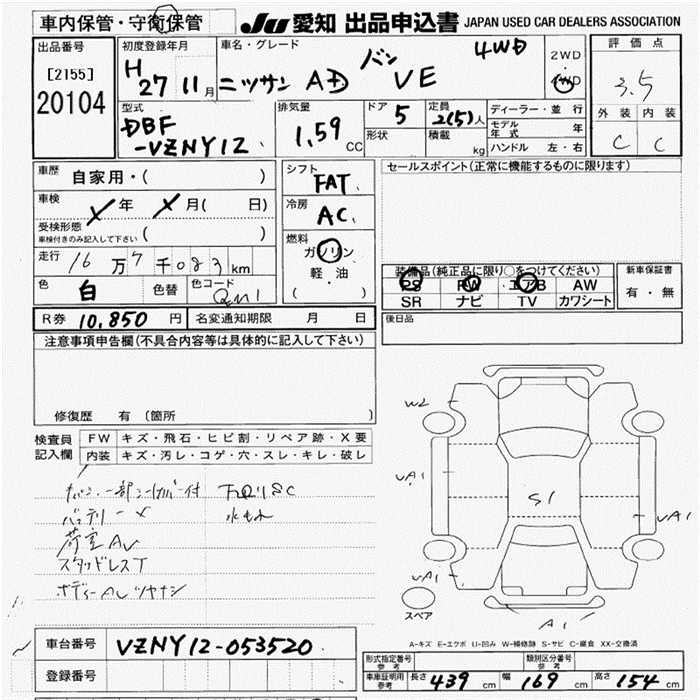 車内保管・守衛保管
JU 愛知 出品申込書 JAPAN USED CAR DEALERS ASSOCIATION
出品番号
[2155]
20104
初度登録年月
H 27 11月
車名・グレード
ニッサン AD バン VE 4WD
2WD
・
4WD
評価点
3.5
外装 内装
C C
型式
DBF
-VZNY12
排気量
1.59 CC
ドア 5
形状
定員 2(5)人
積載 kg
ディーラー・並行
モデル年式 年
ハンドル 左・右
車歴 自家用・( )
車検 X年 X月( 日)
受検形態
車検付きのみ記入して下さい ( )
走行 16万7千083km
色 白 色替 色コード QM1
シフト
FAT
冷房
AC
燃料
ガソリン
軽・油
( )
セールスポイント(正常に機能するものに限ります)
装備品(純正品に限り○をつけてください)
PS PW エアB AW
SR ナビ TV カワシート
新車保証書
有・無
R券 10,850円 名変通知期限 月 日
後日品
注意事項申告欄(不具合内容等は具体的に記入して下さい)
修復歴 有 〔箇所 〕
検査員記入欄
FW キズ・飛石・ヒビ割・リペア跡・X要
内装 キズ・汚レ・コゲ・穴・スレ・キレ・破レ
バッテリーX
荷室AU
スタッドレスT
W2
UA1
S1
UA1
UA1
A1
スペア
A-キズ E-エクボ U-凹み W-補修跡 S-サビ C-腐食 XX-交換済
車台番号 VZNY12-053520
登録番号
形式指定番号参考 類別区分番号参考
車庫証明用参考 長さ 439 cm 幅 169 cm 高さ 154 cm